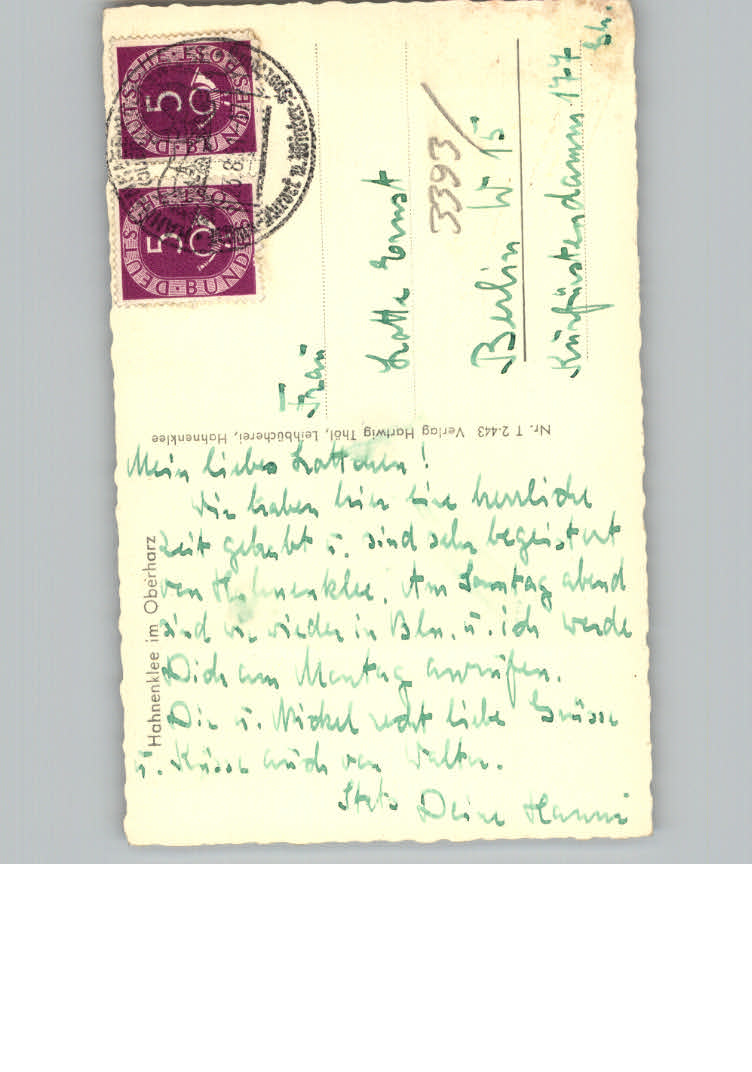 Mein liebes Lottchen!
Wir haben hier eine herrliche
Zeit gehabt u. sind sehr begeistert
von Hahnenklee. Am Sonntag abend
sind wir wieder in Bln. u. ich werde
Dich am Montag anrufen.
Dir u. Nickel recht liebe Grüsse
u. Küsse auch von Walter.
Stets Deine Hanni
Hahnenklee im Oberharz
Nr. T 2-443 Verlag Hartwig Thöl, Leihbücherei, Hahnenklee
Frau
Lotte Ernst
3393
Berlin W 15
Kurfürstendamm 177
DEUTSCHE BUNDESPOST
5
DEUTSCHE BUNDESPOST
5